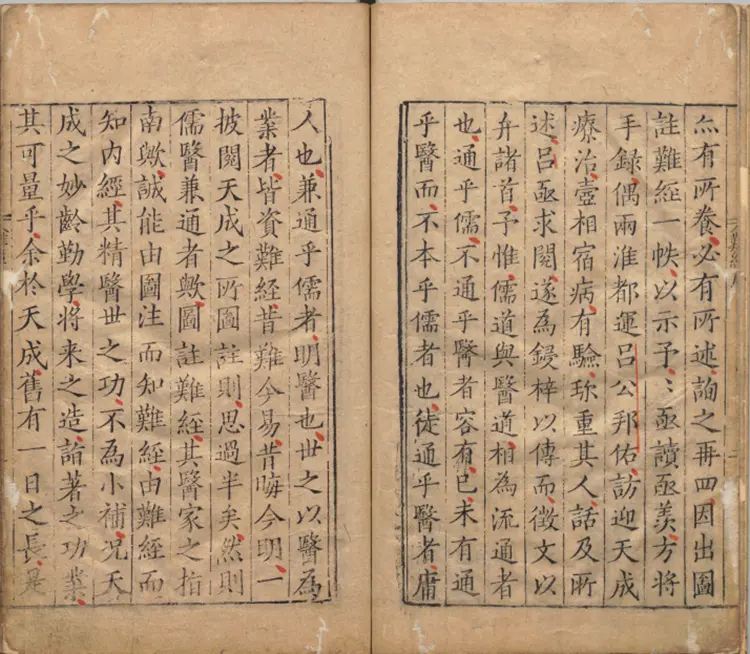 亦有所養必有所述詢之再四因出圖
註難經一帙以示予〻亟讀亟羨方將
手録偶兩淮都運吕公邦佑訪迎天成
療治壺相宿病有驗珎重其人話及所
述吕亟求閱遂為鋟梓以傳而徵文以
弁諸首予惟儒道與醫道相為流通者
也通乎儒不通乎醫者容有已未有通
乎醫而不本乎儒者也徒通乎醫者庸
人也兼通乎儒者明醫也世之以醫為
業者皆資難經昔難今易昔晦今明一
披閱天成之所圖註則思過半矣然則
儒醫兼通者歟圖註難經其醫家之指
南歟誠能由圖注而知難經由難經而
知内經其精醫世之功不為小補况天
成之妙齡勤學將来之造詣著之功業
其可量乎余於天成舊有一日之長是